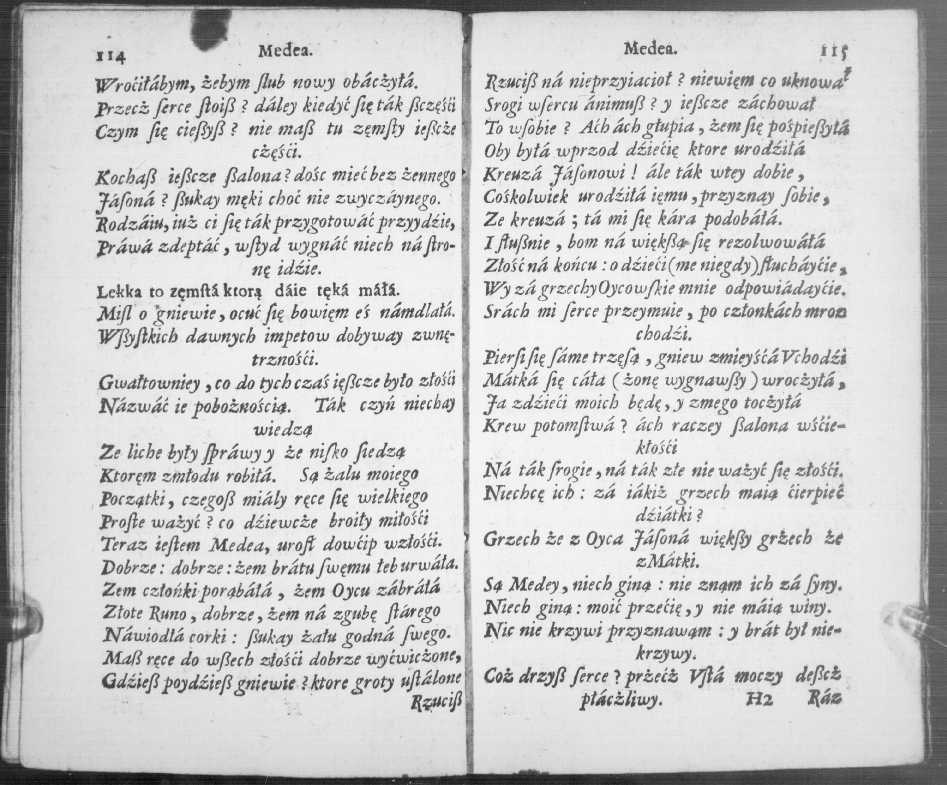 114 Medea.
Wroćiłábym, żebym ſlub nowy obáczyłá.
Przecż ſerce ſtoiß? dáley kiedyć ſię ták ßczęśći
Czym ſię cieſſyß? nie maß tu zęmſty ießcże
cżęśći.
Kochaß ieſzcze ßalona? dośc mieć bez żennego
Jáſoná? ßukay męki choć nie zwyczáynego.
Rodzáiu, iuż ci ſię ták przygotować przyydźie,
Práwá zdeptáć, wſtyd wygnáć niech ná ſtro-
nę idźie.
Lekka to zęmſtá ktorą dáie tęká máłá.
Miſl o gniewie, ocuć ſię bowięm eś námdlałá.
Wſſyſtkich dawnych impetow dobyway zwnę-
trznośći.
Gwałtowniey, co do tych czaś ięßcze było złośći
Názwáć ie pobożnośćią. Ták czyń niechay
wiedzą
Ze liche były ſpráwy y że niſko ſiedzą
Ktorem zmłodu robiłá. Są żalu moiego
Początki, czegoß miály ręce ſię wielkiego
Proſte ważyć? co dźiewcże broiły miłośći
Teraz ieſtem Medea, uroſt dowćip wzłośći.
Dobrze: dobrze: żem brátu ſwęmu łeb urwáłá.
Zem człońki porąbáłá, żem Oycu zábráłá
Złote Runo, dobrze, żem ná zgubę ſtárego
Náwiodlá corki: ßukay żału godná ſwego.
Maß ręce do wßech złośći dobrze wyćwiczone,
Gdźieß poydźieß gniewie? ktore groty uſtálone
Rzuciß
Medea. 115
Rzuciß ná nieprzyiacioł? niewięm co uknował
Srogi wſercu ánimuß? y ieſzcze záchował
To wſobie? Aćh ách głupia, żem ſię pośpieſſyłá
Oby byłá wprzod dźiećię ktore urodźiłá
Kreuzá Jáſonowi! ále ták wtey dobie,
Cośkolwiek urodźiłá ięmu, przyznay ſobie,
Ze kreuzá; tá mi ſię kára podobáłá.
I ſłuſnie, bom ná więkſſą ſię rezolwowáłá
Złość ná końcu: o dźieći (me niegdy) ſłucháyćie,
Wy zá grzechy Oycowſkie mnie odpowiádayćie.
Srách mi ſerce przeymuie, po członkách mroz
chodźi.
Pierſi ſię ſáme trzęſą, gniew zmieyśćá Vchodźi
Mátká ſię cáła (żonę wygnawſſy) wrocżyłá,
Ja zdźieći moich będę, y zmego toczyłá
Krew potomſtwá? ách raczey ßalona wśćie-
kłośći
Ná ták ſrogie, ná ták złe nie ważyć ſię złośći.
Niechcę ich: zá iákiż grzech maią ćierpieć
dźiátki?
Grzech że z Oyca Jáſoná więkſſy grżech że
zMátki.
Są Medey, niech giną: nie znąm ich zá ſyny.
Niech giną: moić przećię, y nie máią winy.
Nic nie krzywi przyznawąm: y brát był nie-
krzywy.
Coż drzyß ſerce? przećż Vſtá moczy deßcż
płáczliwy. H2 Ráz